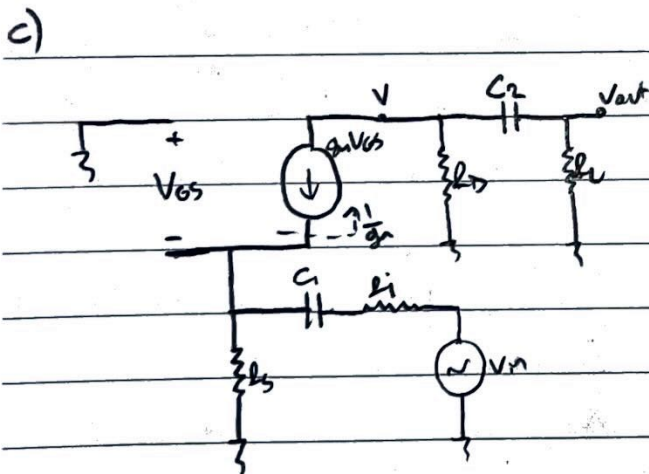 c)
V C2 Vout
+ gmVGS
VGS RD RL
- - 1/gm
C1 Ri
RS Vin